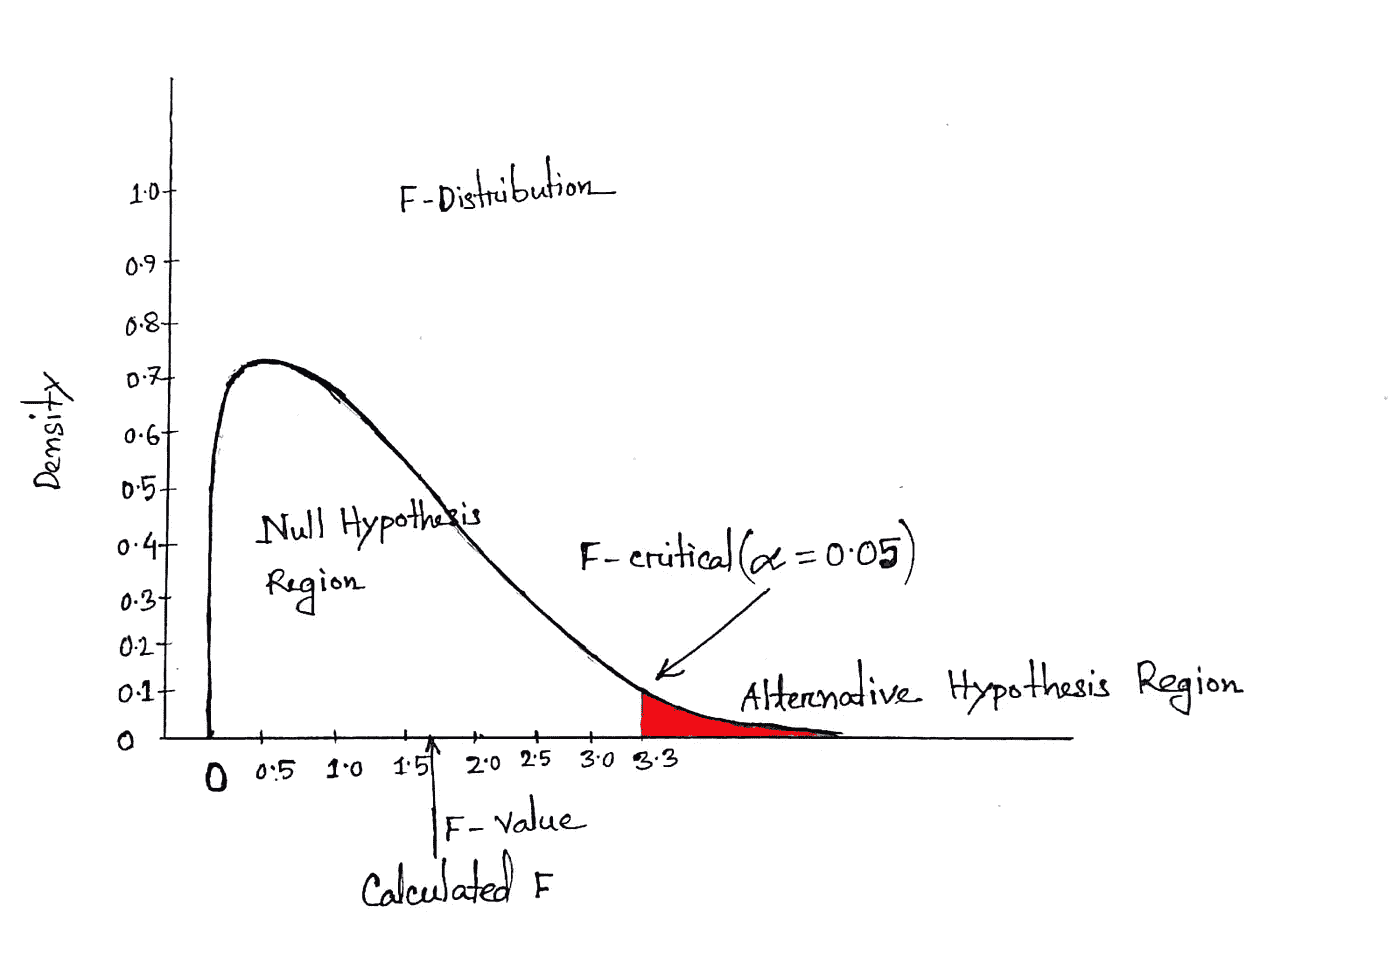 F-Distribution
1.0
0.9
0.8
0.7
0.6
0.5
0.4
0.3
0.2
0.1
0
Density
Null Hypothesis
Region
F-critical (α = 0.05)
Alternative Hypothesis Region
0 0.5 1.0 1.5 2.0 2.5 3.0 3.3
F-Value
Calculated F